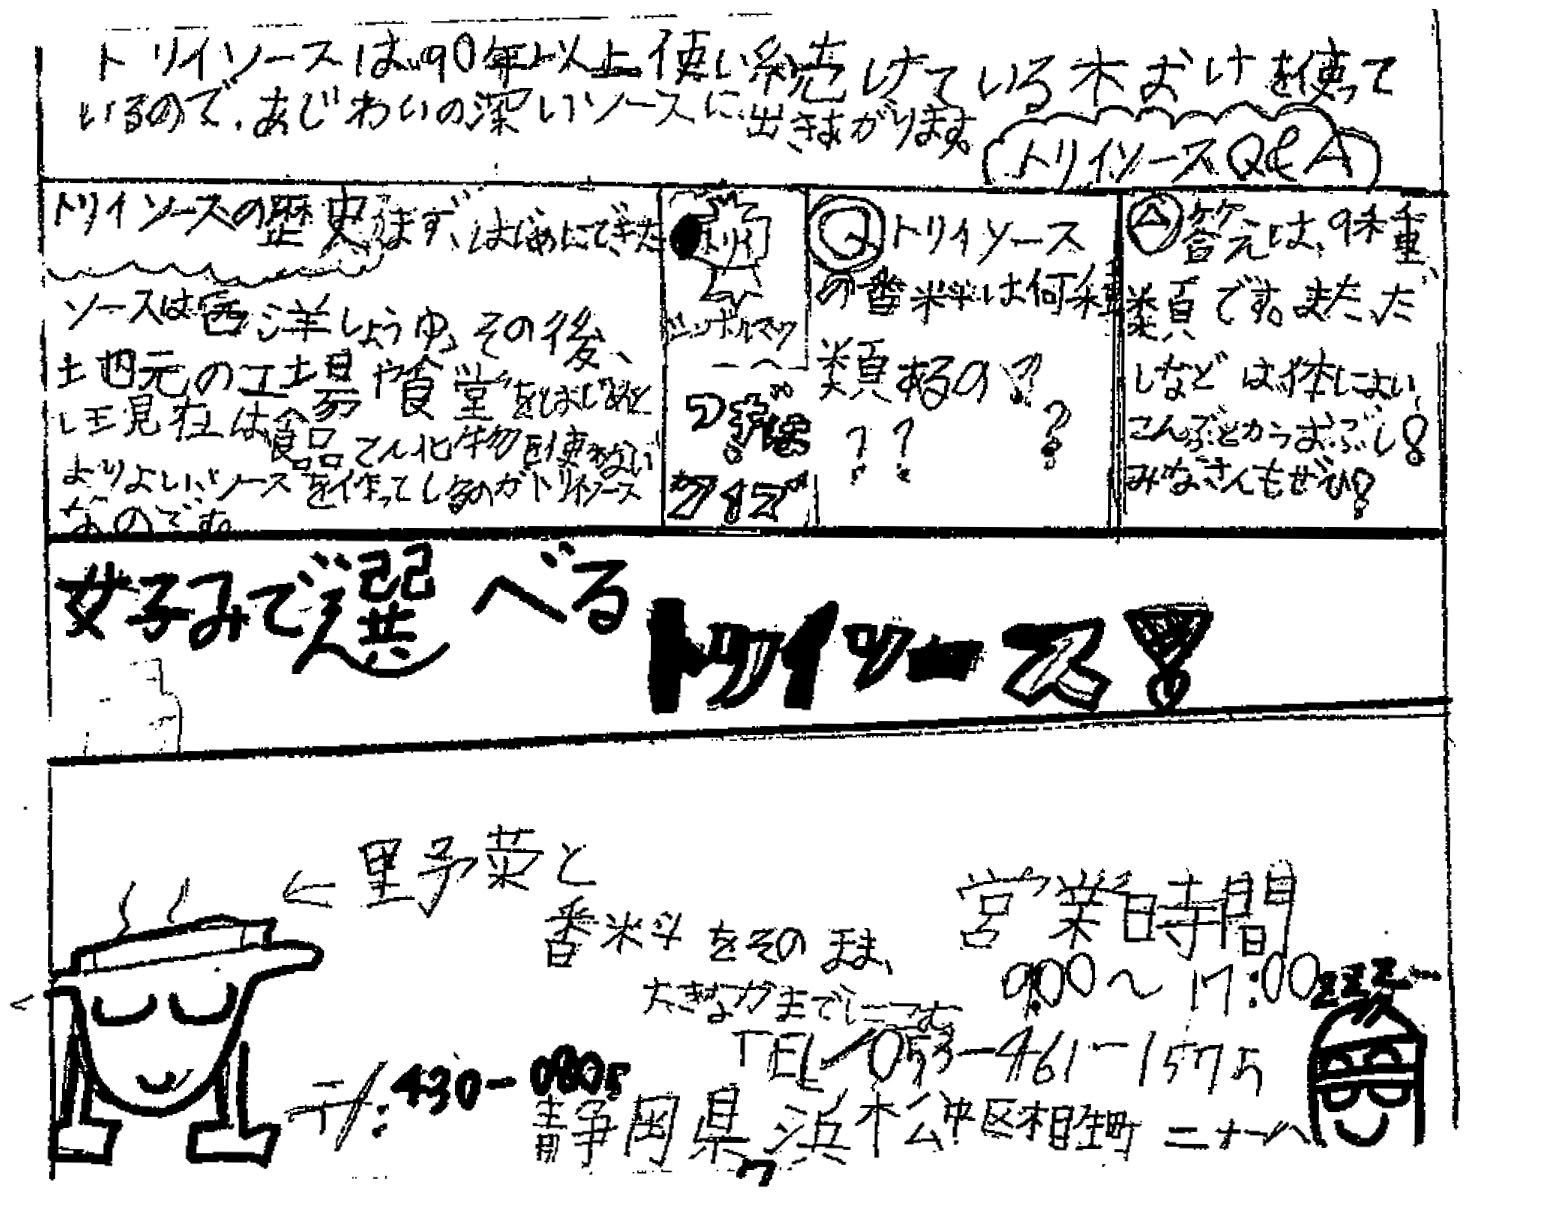 トリイソースは90年以上使い続けている木おけを使って
いるので、あじわいの深いソースに出きあがります。
トリイソースQ&A
トリイソースの歴史
まず、はじめにできた
ソースは西洋しょうゆ。その後、
土地元の工場や食堂をはじめと
し、現在は食品てん化物を使わない
よりよいソースを作っているのがトリイソース
なのです。
トリイ
シンボルマク
つぎは
クイズ
Q トリイソース
の香料は何種
類あるの??
???
A 答えは、9種
類です。また、だ
しなどは、体によい
こんぶとかつおぶし!
みなさんもぜひ!
好みで選べる
トリイソース!
←野菜と
香料をそのまま、
大きなかまでにこむ
営業時間
9:00〜17:00
TEL/053-461-1575
〒/:430-0805
静岡県浜松中区相生町